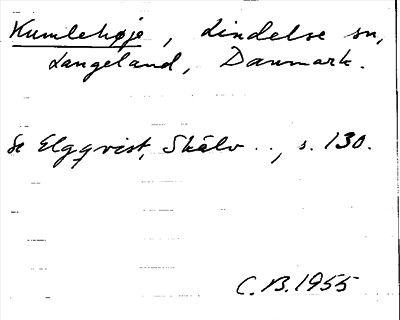 Kumlehøje, Lindelse sn,
Langeland, Danmark.
Se Elgqvist, Skälv.., s. 130.
C.B. 1955